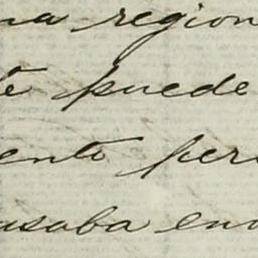 na region
é puede
ente per
usaba en